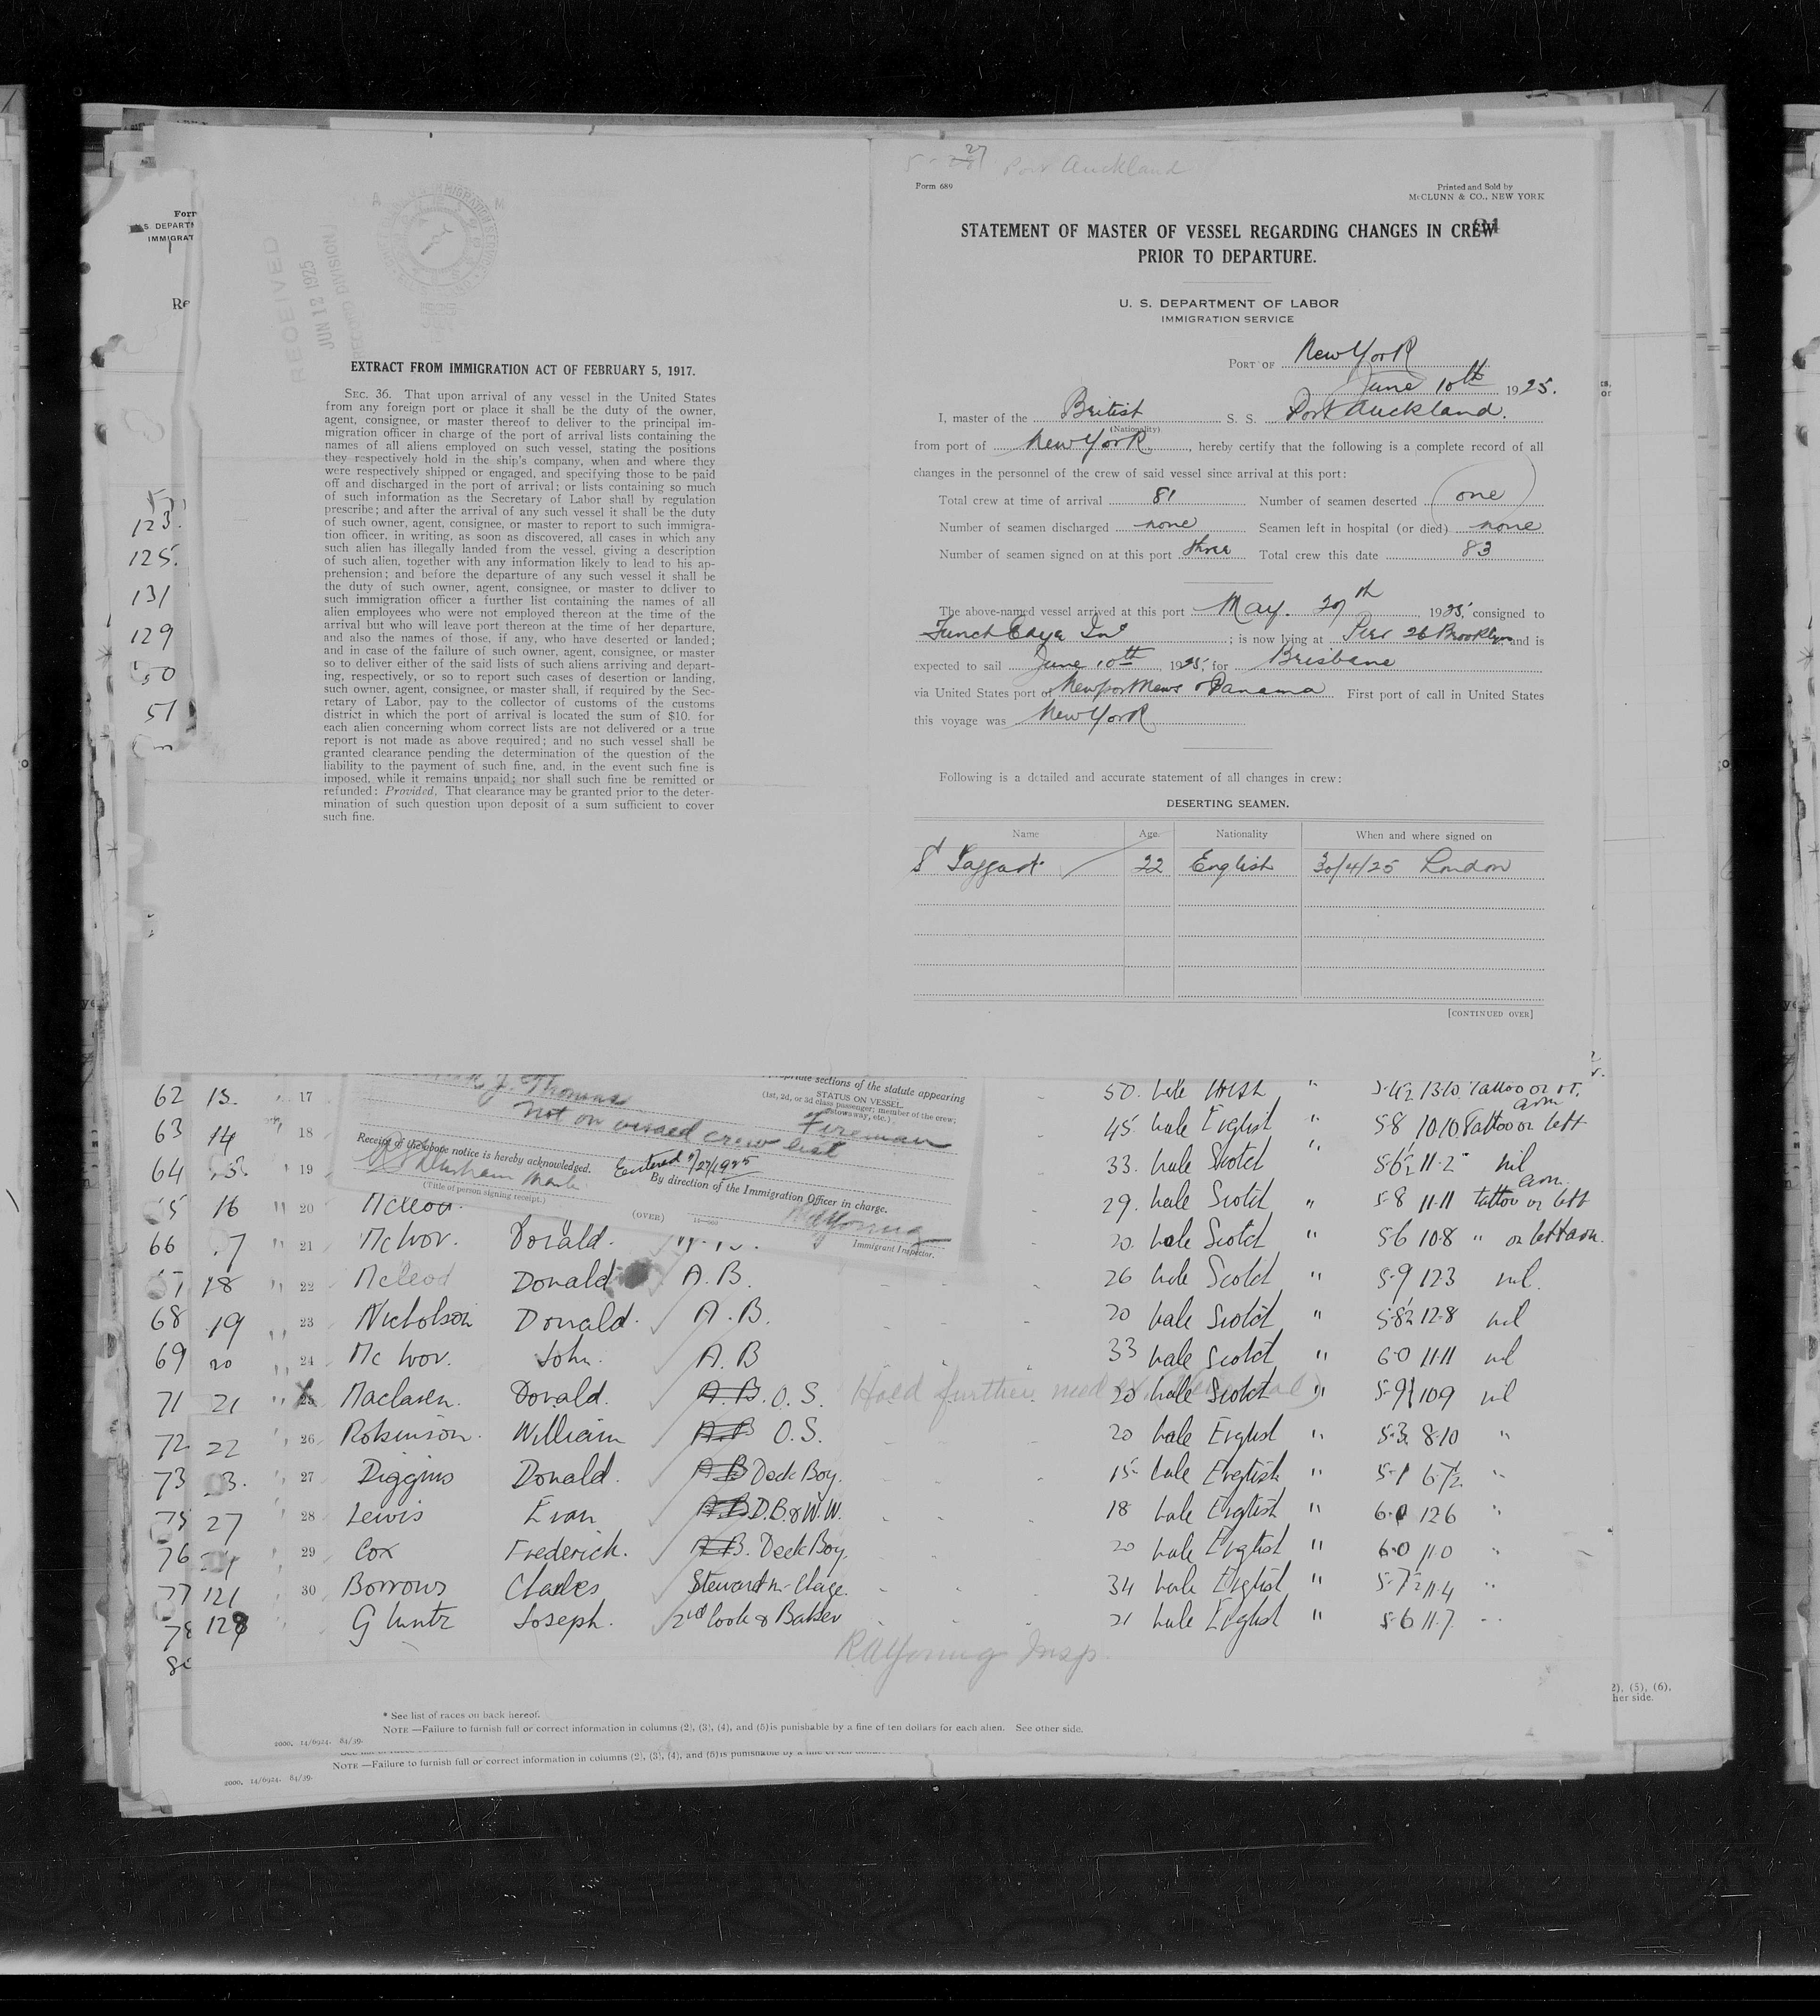 Form 689
Port Auckland
Printed and Sold by
McCLUNN & CO., NEW YORK
STATEMENT OF MASTER OF VESSEL REGARDING CHANGES IN CREW
PRIOR TO DEPARTURE.
U. S. DEPARTMENT OF LABOR
IMMIGRATION SERVICE
PORT OF New York
June 10th 1925.
I, master of the British S. S. Port Auckland.
(Nationality)
from port of New York, hereby certify that the following is a complete record of all
changes in the personnel of the crew of said vessel since arrival at this port:
Total crew at time of arrival 81 Number of seamen deserted one
Number of seamen discharged none Seamen left in hospital (or died) none
Number of seamen signed on at this port three Total crew this date 83
The above-named vessel arrived at this port May. 27th 1925, consigned to
Funch Edye Inc; is now lying at Pier 26 Brooklyn and is
expected to sail June 10th, 1925, for Brisbane
via United States port of Newport News & Panama First port of call in United States
this voyage was New York
Following is a detailed and accurate statement of all changes in crew:
DESERTING SEAMEN.
Name Age. Nationality When and where signed on
S Taggart 22 English 30/4/25 London
[CONTINUED OVER]
RECEIVED
JUN 12 1925
RECORD DIVISION
EXTRACT FROM IMMIGRATION ACT OF FEBRUARY 5, 1917.
SEC. 36. That upon arrival of any vessel in the United States
from any foreign port or place it shall be the duty of the owner,
agent, consignee, or master thereof to deliver to the principal im-
migration officer in charge of the port of arrival lists containing the
names of all aliens employed on such vessel, stating the positions
they respectively hold in the ship's company, when and where they
were respectively shipped or engaged, and specifying those to be paid
off and discharged in the port of arrival; or lists containing so much
of such information as the Secretary of Labor shall by regulation
prescribe; and after the arrival of any such vessel it shall be the duty
of such owner, agent, consignee, or master to report to such immigra-
tion officer, in writing, as soon as discovered, all cases in which any
such alien has illegally landed from the vessel, giving a description
of such alien, together with any information likely to lead to his ap-
prehension; and before the departure of any such vessel it shall be
the duty of such owner, agent, consignee, or master to deliver to
such immigration officer a further list containing the names of all
alien employees who were not employed thereon at the time of the
arrival but who will leave port thereon at the time of her departure,
and also the names of those, if any, who have deserted or landed;
and in case of the failure of such owner, agent, consignee, or master
so to deliver either of the said lists of such aliens arriving and depart-
ing, respectively, or so to report such cases of desertion or landing,
such owner, agent, consignee, or master shall, if required by the Sec-
retary of Labor, pay to the collector of customs of the customs
district in which the port of arrival is located the sum of $10. for
each alien concerning whom correct lists are not delivered or a true
report is not made as above required; and no such vessel shall be
granted clearance pending the determination of the question of the
liability to the payment of such fine, and, in the event such fine is
imposed, while it remains unpaid; nor shall such fine be remitted or
refunded: Provided, That clearance may be granted prior to the deter-
mination of such question upon deposit of a sum sufficient to cover
such fine.
123.
125.
131
129
50
51
J. Thomas
sections of the statute appearing
STATUS ON VESSEL.
(1st, 2d, or 3d class passenger; member of the crew;
stowaway, etc.)
Fireman
not on visaed crew list
Receipt of the above notice is hereby acknowledged.
Entered 5/27/1925
By direction of the Immigration Officer in charge.
(Title of person signing receipt.)
(OVER)
RAYoung
Immigrant Inspector.
62 13. 17 50. male Irish " 1310 Tattoo on rt. arm
63 14 18 45 male English " 5-8 10.10 Tattoo on left
64 19 33. male Scotch " 5-6½ 11-2 nil
16 " 20 McLeod 29. male Scotch " 5-8 11-11 tattoo on left arm.
66 " 21 McIvor. Donald. 20. male Scotch " 5-6 10-8 " on left arm.
18 " 22 McLeod Donald A.B. 26 male Scotch " 5-9 12-3 nil.
68 19 " 23 Nicholson Donald. A.B. 20 male Scotch " 5-8½ 12-8 nil
69 20 " 24 McIvor. John. A.B 33 male Scotch " 6-0 11-11 nil
71 21 " 25 Maclaren. Donald. A.B. O.S. Hold further med ex 20 male Scotch " 5-9½ 10-9 nil
72 22 26 Robinson. William A.B O.S. 20 male English " 5-3 8-10 "
73 27 Diggins Donald. A.B Deck Boy. 15 male English " 5-1 6-7½ "
27 28 Lewis Evan A.B. D.B. & W.W. 18 male English " 6-0 12-6 "
76 29 Cox Frederick. A.B. Deck Boy. 20 male English " 6-0 11-0 "
77 121 30 Borrows Charles Steward in Charge. 34 male English " 5-7½ 11-4 "
78 128 Joseph. 2nd Cook & Baker 21 male English " 5-6 11-7.
RAYoung Insp.
* See list of races on back hereof.
NOTE —Failure to furnish full or correct information in columns (2), (3), (4), and (5) is punishable by a fine of ten dollars for each alien. See other side.
2000. 14/6924. 84/39.
NOTE —Failure to furnish full or correct information in columns (2), (3), (4), and (5) is punishable by a fine of ten
2000. 14/6924. 84/39.
2), (5), (6).
her side.